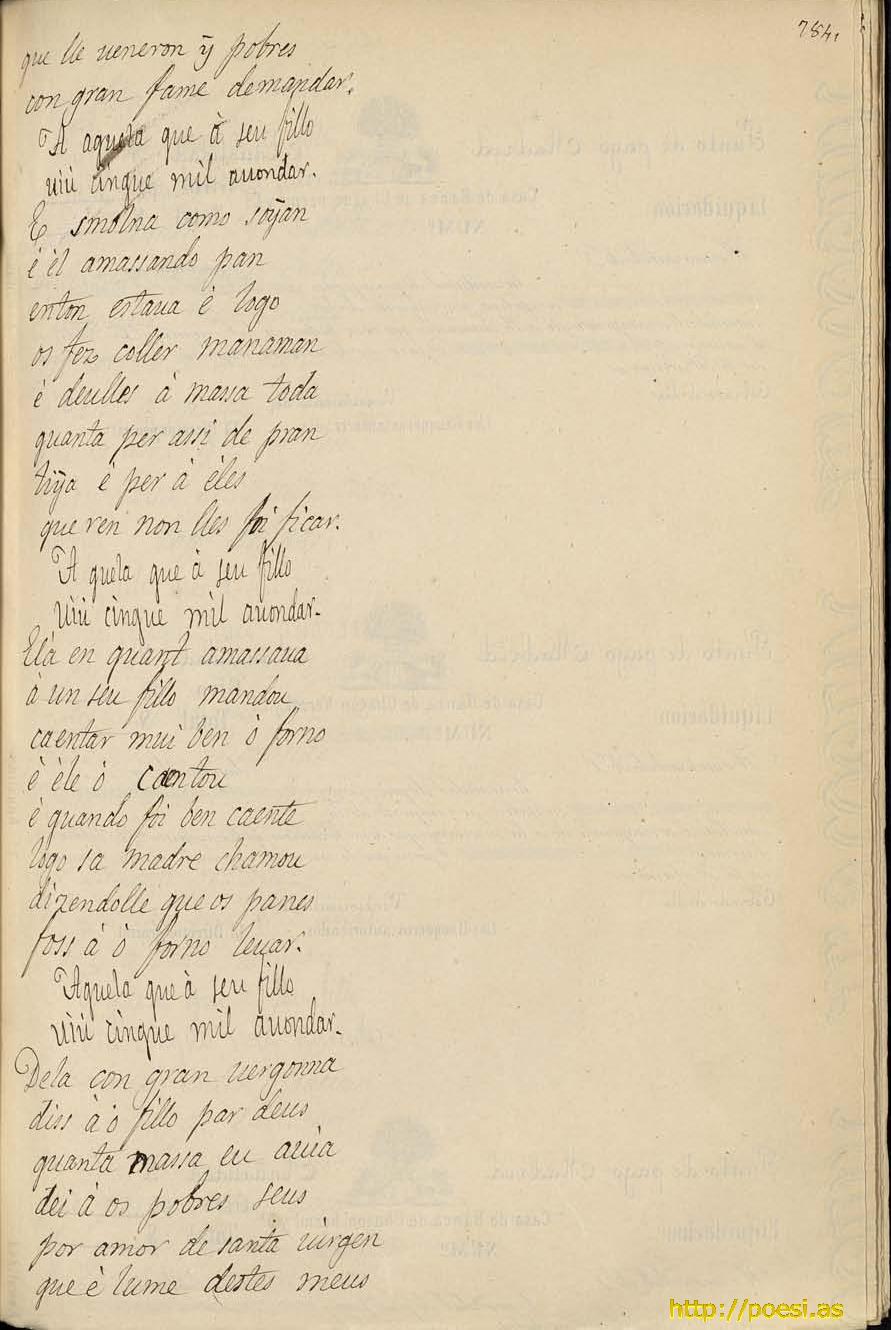 784.
que lle ueneron ỹ pobres
con gran fame demandar.
A aquela que à seu fillo
uiù cinque mil auondar.
E smolna como soỹan
è èl amassando pan
enton estaua è logo
os fez coller manaman
è deulles à massa toda
quanta per assi de pran
tiỹa è per à èles
que ren non lles foi ficar.
A quela que à seu fillo
uiù cinque mil auondar.
Ela en quant amassaua
à un seu fillo mandou
caentar mui ben ò forno
è èle ò caentou
è quando foi ben caente
logo sa madre chamou
dizendolle que os panes
foss à ò forno leuar.
Aquela que à seu fillo
uiù cinque mil auondar.
Dela con gran uergonna
diss à ò fillo par deus
quanta massa eu auia
dei à os pobres seus
por amor de santa uirgen
que è lume destes meus
http://poesi.as